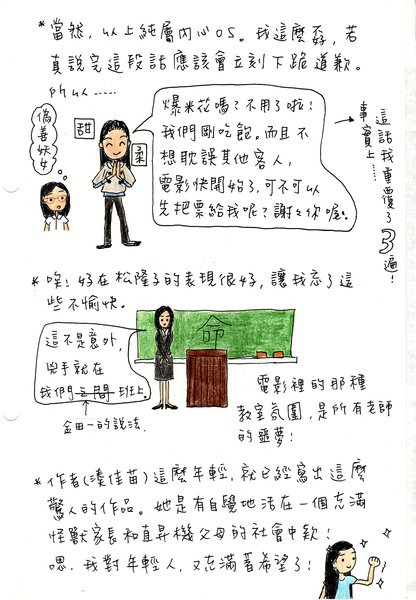 *當然，以上純屬內心OS。我這麼孬，若
真說完這段話應該會立刻下跪道歉。
所以……
偽善妖女
甜
柔
爆米花嗎？不用了啦！
我們剛吃飽。而且不
想耽誤其他客人，
電影快開始了，可不可以
先把票給我呢？謝謝你喔！
這話我重覆了3遍！
事實上……
*唉！好在松隆子的表現很好，讓我忘了這
些不愉快。
這不是意外，
兇手就在
我們之間班上。
金田一的說法
命
電影裡的那種
教室氛圍，是所有老師
的噩夢！
*作者(湊佳苗)這麼年輕，就已經寫出這麼
驚人的作品。她是有自覺地活在一個充滿
怪獸家長和直昇機父母的社會中欸！
嗯，我對年輕人，又充滿著希望了！